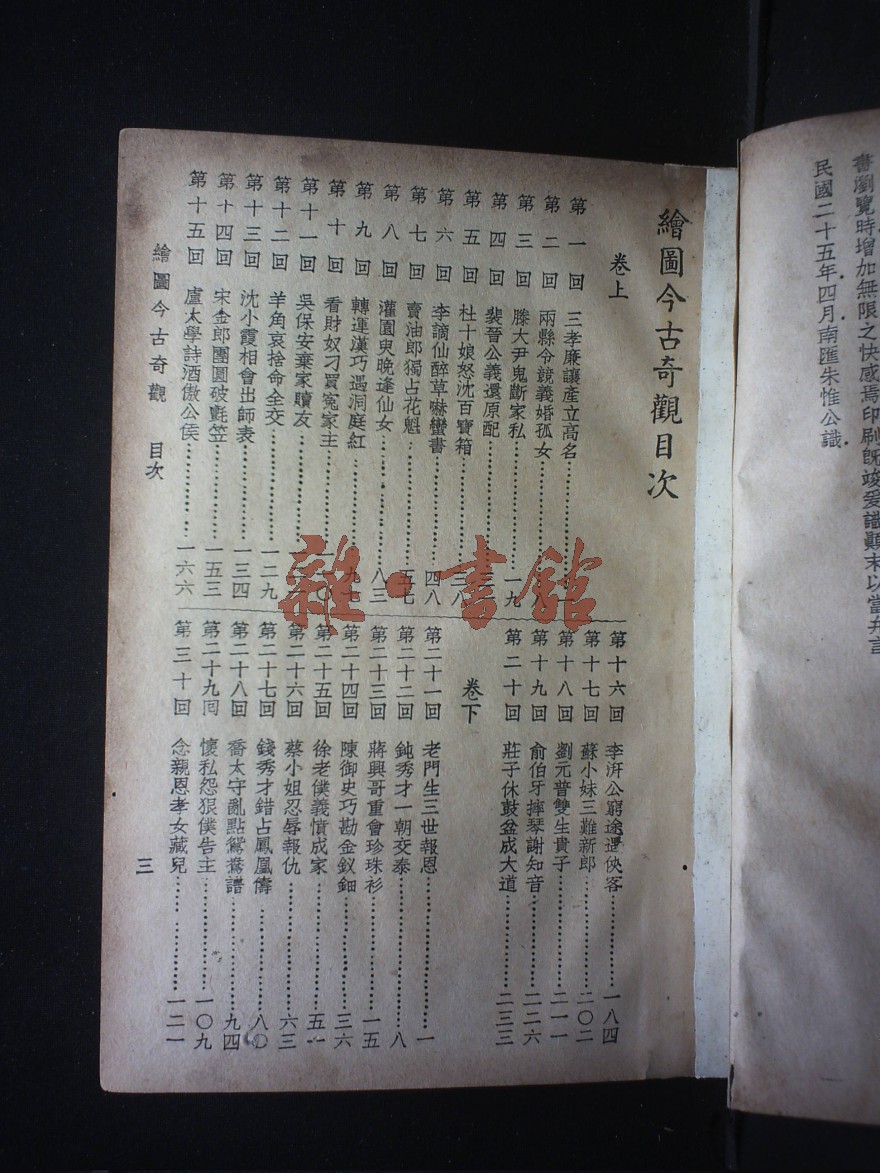 書瀏覽時增加無限之快感焉印刷既竣爰識顚末以當弁言
民國二十五年四月南匯朱惟公識
繪圖今古奇觀目次
卷上
第一回 三孝廉讓產立高名
第二回 兩縣令競義婚孤女
第三回 滕大尹鬼斷家私 一九
第四回 裴晉公義還原配
第五回 杜十娘怒沈百寶箱 三八
第六回 李謫仙醉草嚇蠻書 四八
第七回 賣油郎獨占花魁 五七
第八回 灌園叟晚逢仙女 八三
第九回 轉運漢巧遇洞庭紅 九七
第十回 看財奴刁買冤家主
第十一回 吳保安棄家贖友
第十二回 羊角哀捨命全交 一二九
第十三回 沈小霞相會出師表 一三四
第十四回 宋金郎團圓破氈笠 一五三
第十五回 盧太學詩酒傲公侯 一六六
第十六回 李汧公窮途遇俠客 一八四
第十七回 蘇小妹三難新郎 二〇二
第十八回 劉元普雙生貴子 二一一
第十九回 俞伯牙摔琴謝知音 二二六
第二十回 莊子休鼓盆成大道 二三三
卷下
第二十一回 老門生三世報恩 一
第二十二回 鈍秀才一朝交泰 八
第二十三回 蔣興哥重會珍珠衫 一五
第二十四回 陳御史巧勘金釵鈿 三六
第二十五回 徐老僕義憤成家 五一
第二十六回 蔡小姐忍辱報仇 六三
第二十七回 錢秀才錯占鳳凰儔 八〇
第二十八回 喬太守亂點鴛鴦譜 九四
第二十九回 懷私怨狠僕告主 一〇九
第三十回 念親恩孝女藏兒 一二一
繪圖今古奇觀 目次
三
雜·書館